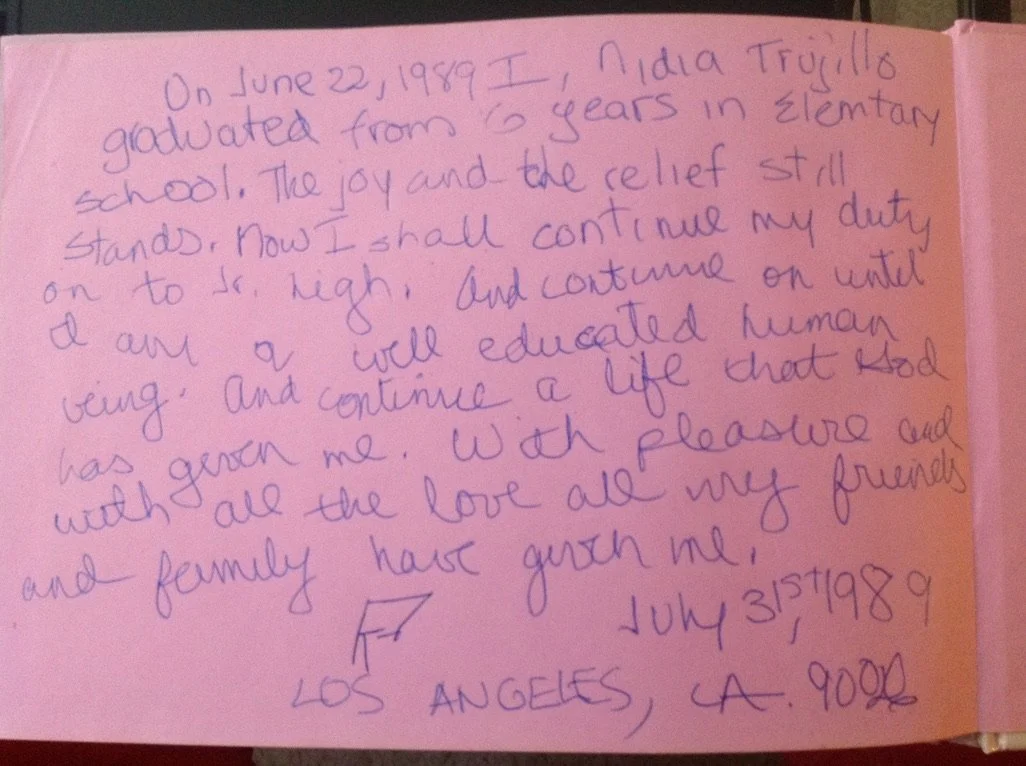 On June 22, 1989 I, Nidia Trujillo
graduated from 6 years in Elemtary
school. The joy and the relief still
stands. Now I shall continue my duty
on to Jr. high. And continue on until
I am a well educated human
being. And continue a life that God
has given me. With pleasure and
with all the love all my friends
and family have given me.
July 31st, 1989
LOS ANGELES, CA.